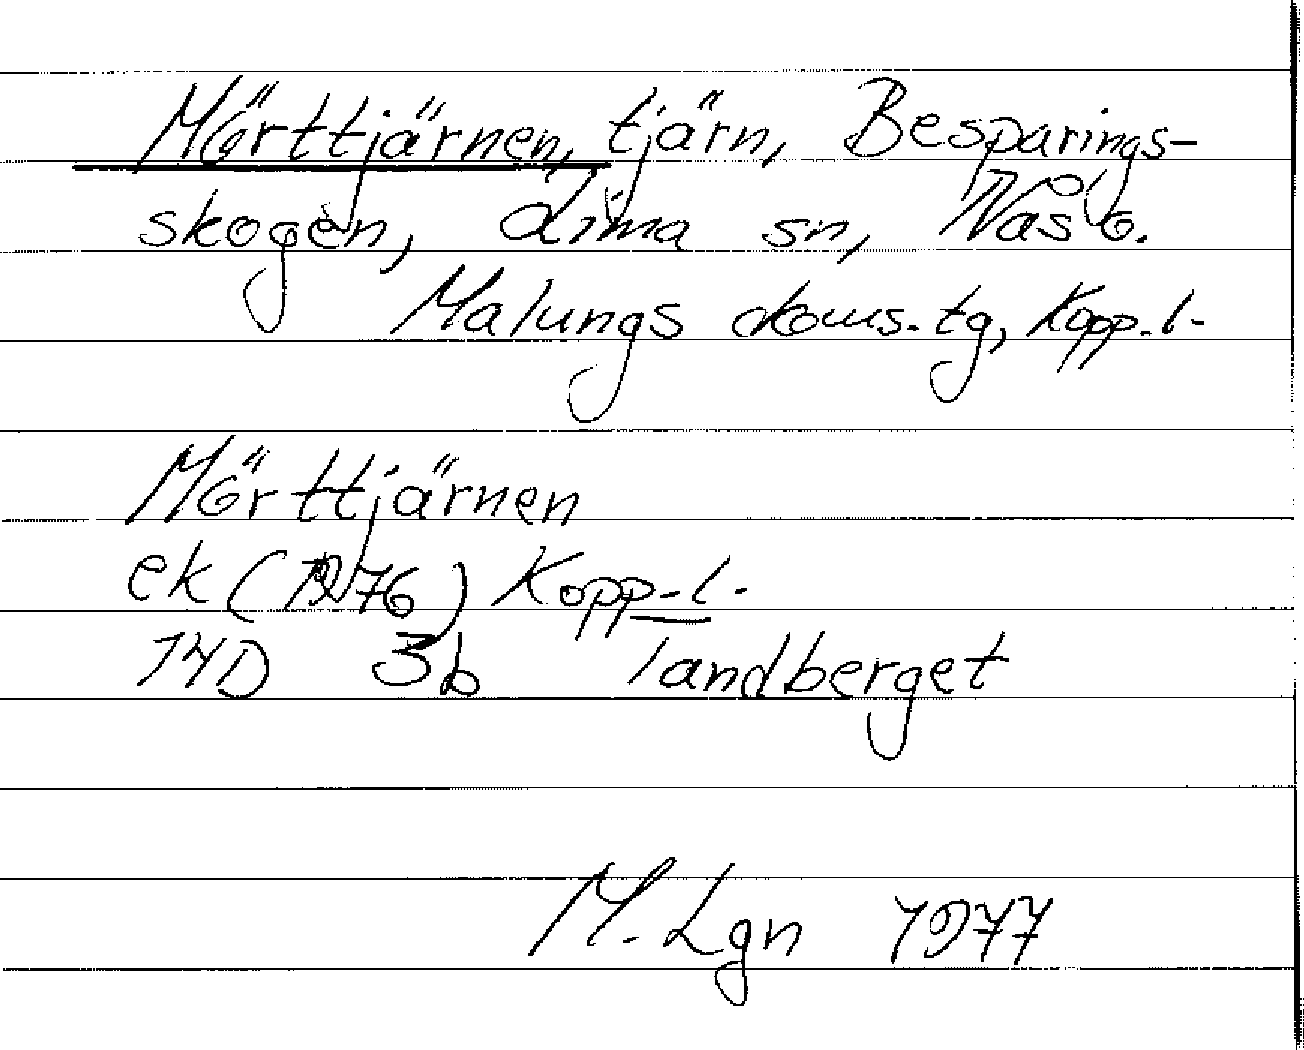 Mörttjärnen, tjärn, Besparings-
skogen, Lima sn, Nås o.
Malungs doms. tg, Kopp. l.
Mörttjärnen
ek (1976) Kopp. l.
14D 3b Tandberget
M. Lgn 1977